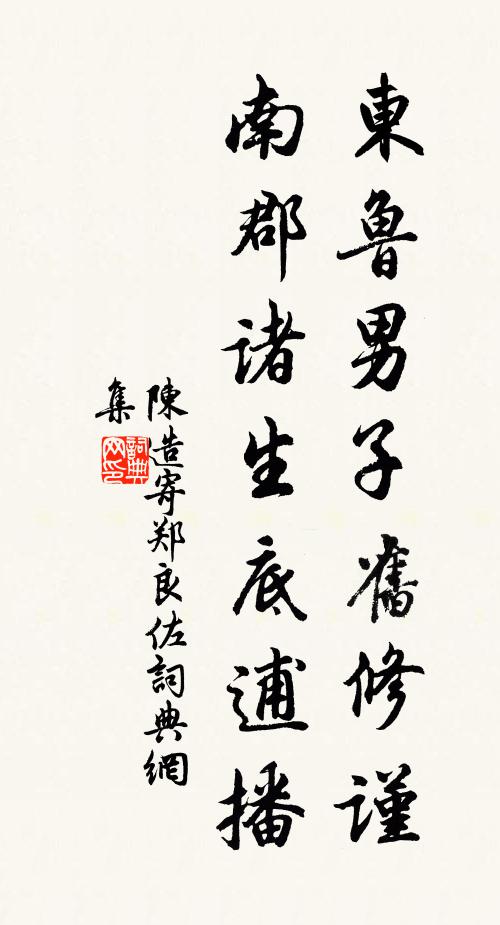 東魯男子舊修謹
南郡諸生底逋播
陳造寄郑良佐詞典網
集
詞典
网印